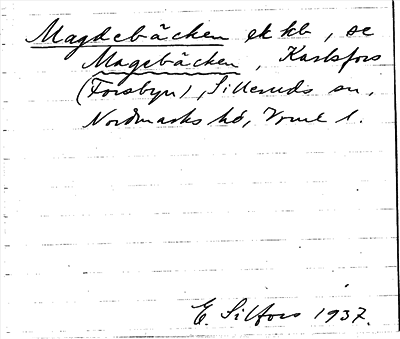 Magdebäcken ek kb, se
Magebäcken, Karlsfors
(Forsbyn), Silleruds sn,
Nordmarks hd, Vrml l.
E. Silfors 1937.